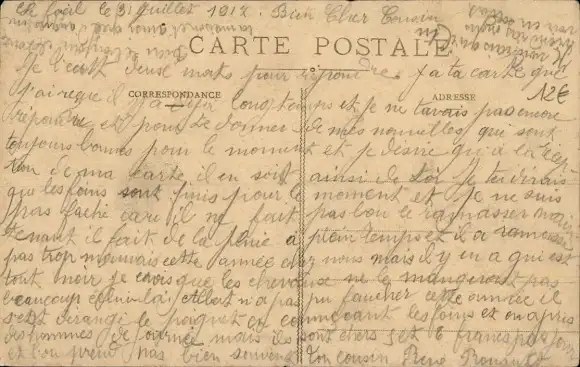 le 31 juillet 1917. Bien Cher Cousin
CARTE POSTALE
Je t'écrit deux mots pour répondre à ta carte que
CORRESPONDANCE
ADRESSE
12€
j'ai reçue il y a longtemps et je ne t'avais pas encore
répondre et pour te donner de mes nouvelles qui sont
toujours bonnes pour le moment et je désire qu'à la
de ma carte il en soit ainsi de toi Je te dirais
que les foins sont finis pour le moment et je ne suis
pas faché car il ne fait pas bon le ramasser
tenant il fait de la pluie à plein temps et il a
pas trop mauvais cette année chez nous mais il y en a qui est
tout noir je crois que les chevaux ne le mangeront pas
beaucoup celui là Albert n'a pas pu faucher cette année il
s'est dérangé le poignet en commençant les foins et on a pris
des hommes de journée mais ils sont chers 5 et 6 francs par jour
et l'on prend pas bien souvent Ton cousin René